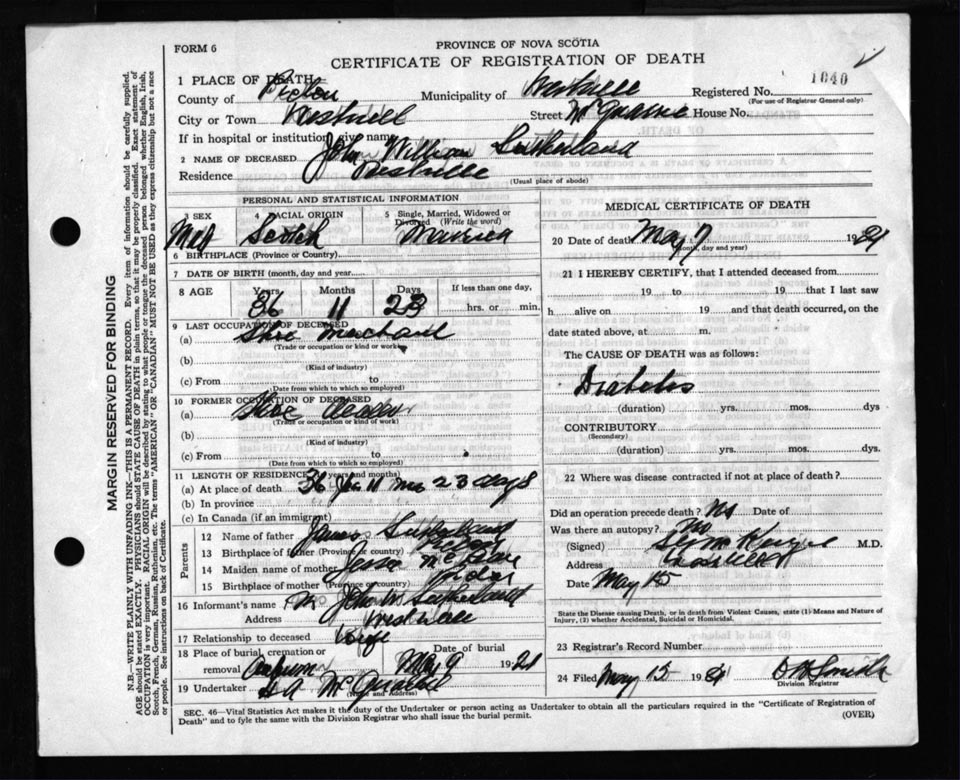 FORM 6
PROVINCE OF NOVA SCOTIA
CERTIFICATE OF REGISTRATION OF DEATH
1040
1 PLACE OF DEATH—
County of Pictou Municipality of Westville Registered No.
(For use of Registrar General only)
City or Town Westville Street House No.
If in hospital or institution, give name
2 NAME OF DECEASED John William Sutherland
Residence Westville
(Usual place of abode)
PERSONAL AND STATISTICAL INFORMATION
3 SEX 4 RACIAL ORIGIN 5 Single, Married, Widowed or Divorced (Write the word)
Scotch Married
6 BIRTHPLACE (Province or Country)
7 DATE OF BIRTH (month, day and year)
8 AGE Years Months Days If less than one day,
36 11 23 hrs. or min.
9 LAST OCCUPATION OF DECEASED
(a) Shoe
(Trade or occupation or kind of work)
(b)
(Kind of industry)
(c) From to
(Date from which to which so employed)
10 FORMER OCCUPATION OF DECEASED
(a) Shoe dealer
(Trade or occupation or kind of work)
(b)
(Kind of industry)
(c) From to
(Date from which to which so employed)
11 LENGTH OF RESIDENCE (in years and months)
(a) At place of death 36 11 mo 23 days
(b) In province
(c) In Canada (if an immigrant)
Parents
12 Name of father James Sutherland
13 Birthplace of father (Province or country)
14 Maiden name of mother
15 Birthplace of mother (Province or country)
16 Informant's name John W Sutherland
Address Westville
17 Relationship to deceased Wife
18 Place of burial, cremation or removal Auburn Date of burial May 9 1921
19 Undertaker D A
(Name and Address)
MEDICAL CERTIFICATE OF DEATH
20 Date of death May 7 1921
(Month, day and year)
21 I HEREBY CERTIFY, that I attended deceased from
19 to 19 that I last saw
h alive on 19 and that death occurred, on the
date stated above, at m.
The CAUSE OF DEATH was as follows:
Diabetes
(duration) yrs. mos. dys
CONTRIBUTORY
(Secondary)
(duration) yrs. mos. dys.
22 Where was disease contracted if not at place of death?
Did an operation precede death? No Date of
Was there an autopsy? No
(Signed) M.D.
Address Westville
Date May 15
State the Disease causing Death, or in death from Violent Causes, state (1) Means and Nature of
Injury, (2) whether Accidental, Suicidal or Homicidal.
23 Registrar's Record Number
24 Filed May 15 1921 Smith
Division Registrar
SEC. 46—Vital Statistics Act makes it the duty of the Undertaker or person acting as Undertaker to obtain all the particulars required in the "Certificate of Registration of
Death" and to fyle the same with the Division Registrar who shall issue the burial permit.
(OVER)
MARGIN RESERVED FOR BINDING
N.B.—WRITE PLAINLY WITH UNFADING INK—THIS IS A PERMANENT RECORD. Every item of information should be carefully supplied.
AGE should be stated EXACTLY. PHYSICIANS should STATE CAUSE OF DEATH in plain terms, so that it may be properly classified. Exact statement of
OCCUPATION is very important. RACIAL ORIGIN will be described by stating to what people or tongue the deceased person belonged whether English, Irish,
Scotch, French, German, Russian, Ruthenian, etc. The terms "AMERICAN" OR "CANADIAN" MUST NOT BE USED as they express citizenship but not a race
or people. See instructions on back of Certificate.